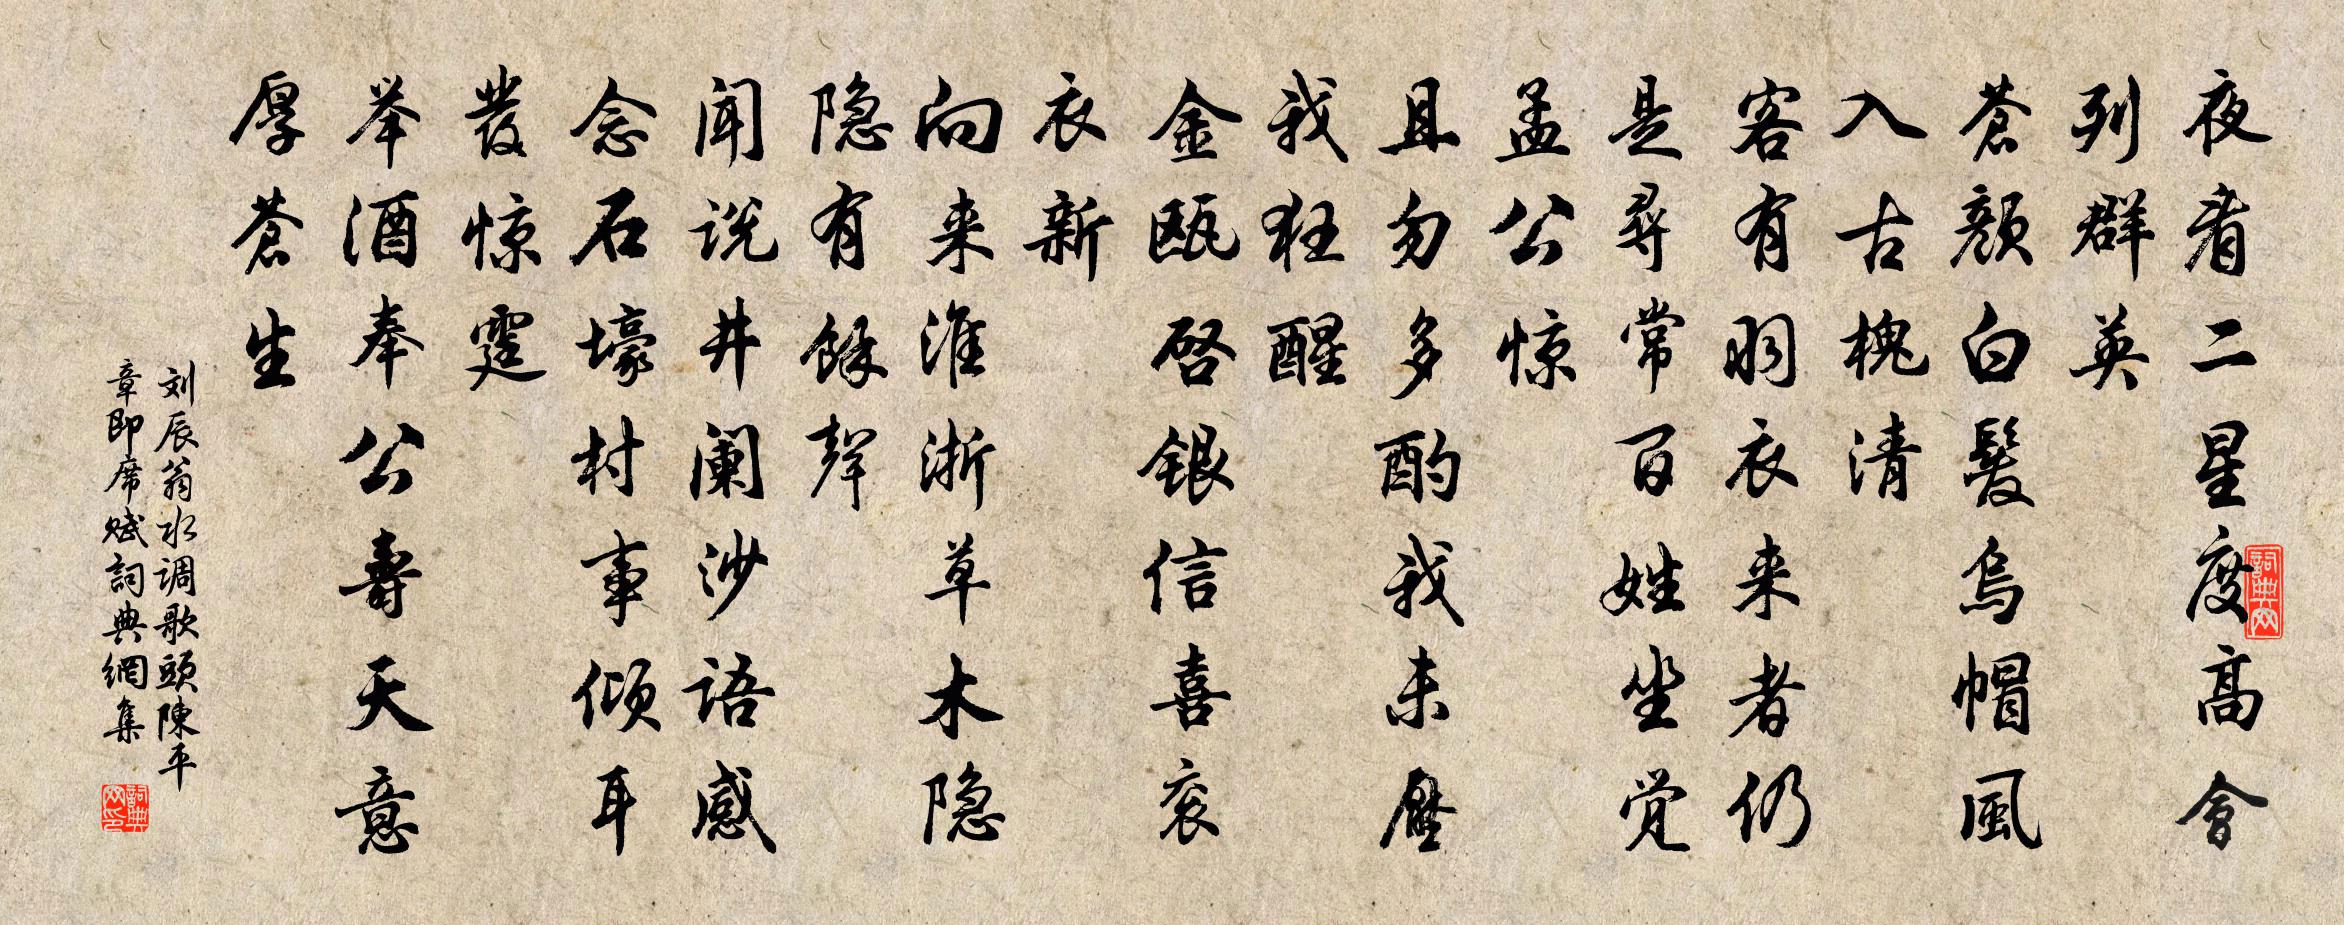 夜看二星度高會
列群英
蒼颜白髮烏帽風
入古槐清
客有羽衣来者仍
是尋常百姓坐觉
孟公惊
且勿多酌我未厭
我狂醒
金瓯啓银信喜衮
衣新
向来淮浙草木隐
隐有餘聲
闻说井阑沙語感
念石壕村事倾耳
發惊霆
举酒奉公壽天意
厚蒼生
刘辰翁水调歌頭陳平
章即席赋詞典網集
詞典网
詞典网印